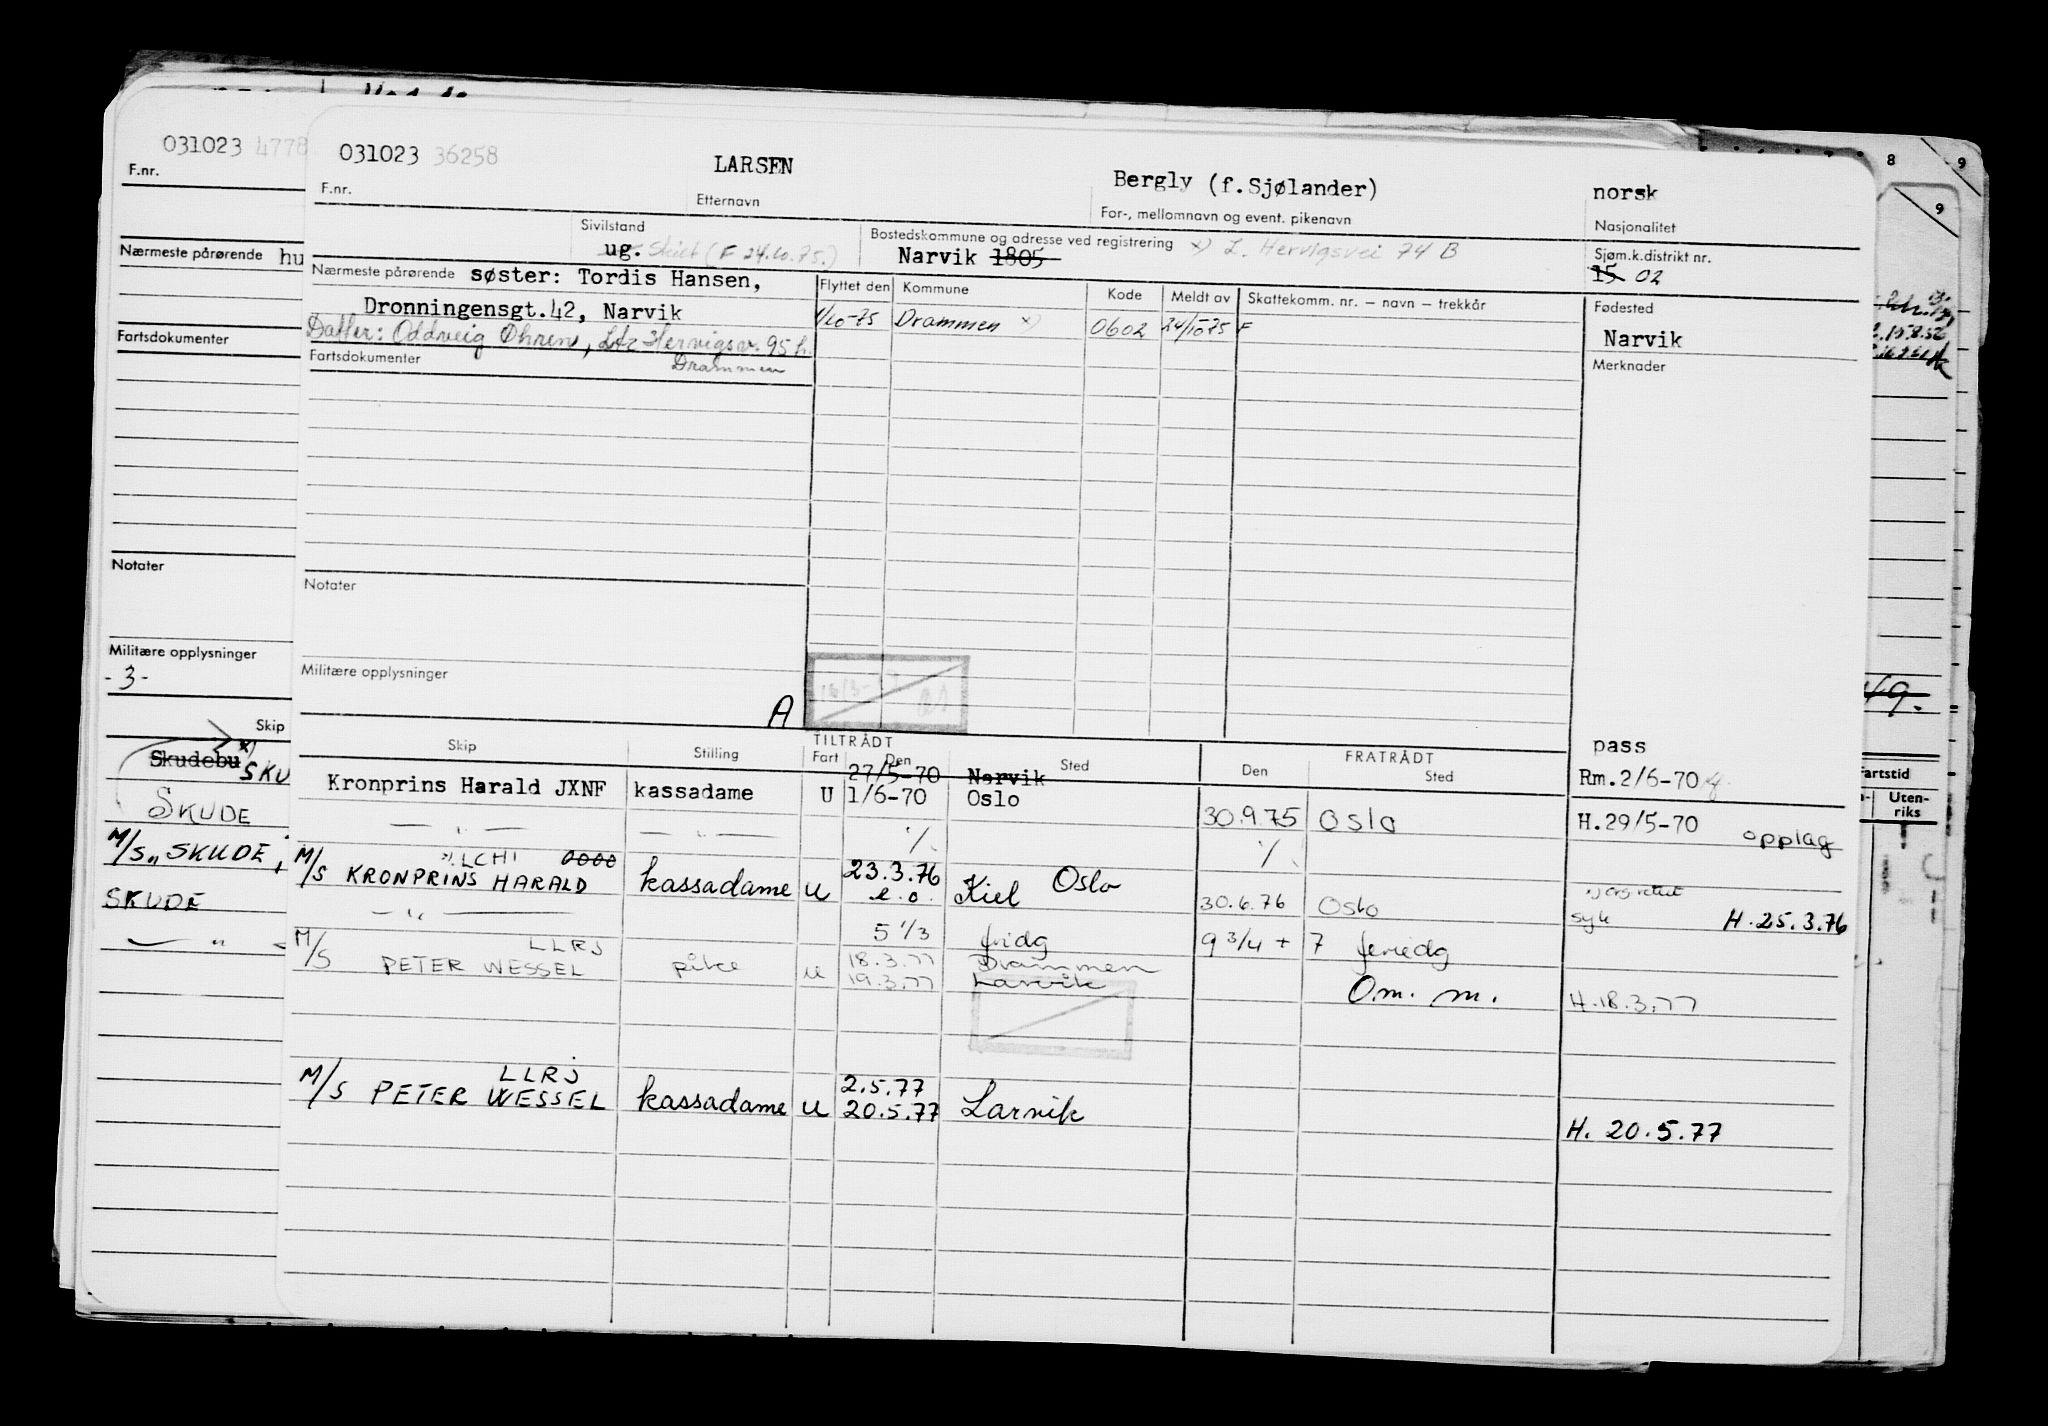 031023 4778
F.nr.
Nærmeste pårørende hu
Fartsdokumenter
Notater
Militære opplysninger
- 3 -
Skip
Skudebu x) SKU
SKUDE
M/S „SKUDE
SKUDE
— " —
031023 36258
LARSEN
Bergly (f.Sjølander)
norsk
F.nr.
Etternavn
For-, mellomnavn og event. pikenavn
Nasjonalitet
Sivilstand
ug. Skilt (F 24.10.75.)
Bostedskommune og adresse ved registrering x) L. Hervigsvei 74 B
Narvik 1805
Sjøm.k.distrikt nr.
15 02
Nærmeste pårørende søster: Tordis Hansen,
Dronningensgt.42, Narvik
Datter: Oddveig Øhren, Ltz Hervigsv. 95 h.
Drammen
Flyttet den Kommune Kode Meldt av Skattekomm. nr. – navn – trekkår
1/10-75 Drammen x) 0602 24/10-75 F
Fødested
Narvik
Merknader
Fartsdokumenter
Notater
Militære opplysninger
A
TILTRÅDT
FRATRÅDT
Skip Stilling Fart Den Sted Den Sted
pass
27/5-70 Narvik
Kronprins Harald JXNF kassadame U 1/6-70 Oslo
Rm.2/6-70
— " — — " — 30.9.75 Oslo
H.29/5-70 opplag
LCHI
M/S KRONPRINS HARALD kassadame U 23.3.76 Oslo
e.o. Kiel
30.6.76 Oslo
syk H.25.3.76
— " —
5 1/3 fridg 9 3/4 + 7 feriedg
LLRJ
M/S PETER WESSEL pike U 18.3.77 Drammen
19.3.77 Larvik
O.m. m.
H.18.3.77
LLRJ
M/S PETER WESSEL kassadame U 2.5.77
20.5.77 Larvik
H. 20.5.77
8
9
9
49.
artstid
Uten-
riks